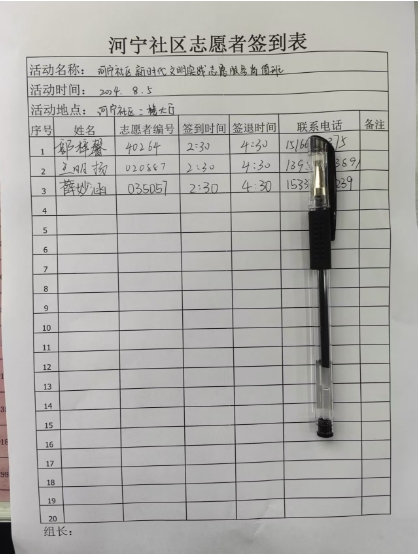 河宁社区志愿者签到表
活动名称：河宁社区新时代文明实践志愿服务站值班
活动时间：2024.8.5
活动地点：河宁社区二楼大厅
序号 姓名 志愿者编号 签到时间 签退时间 联系电话 备注
1 40264 2:30 4:30 15166 75
2 020887 2:30 4:30 139 369
3 薛妙涵 035057 2:30 4:30 1533 239
4
5
6
7
8
9
10
11
12
13
14
15
16
17
18
19
20
组长：